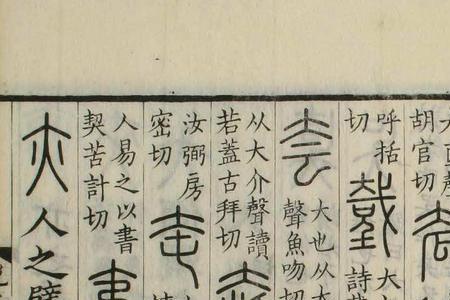 胡官切
呼括
切
大
詩
夽
大也从大
聲魚吻切
从大介聲讀
若蓋古拜切
汝弼房
密切
人易之以書
契苦計切
亦人之臂